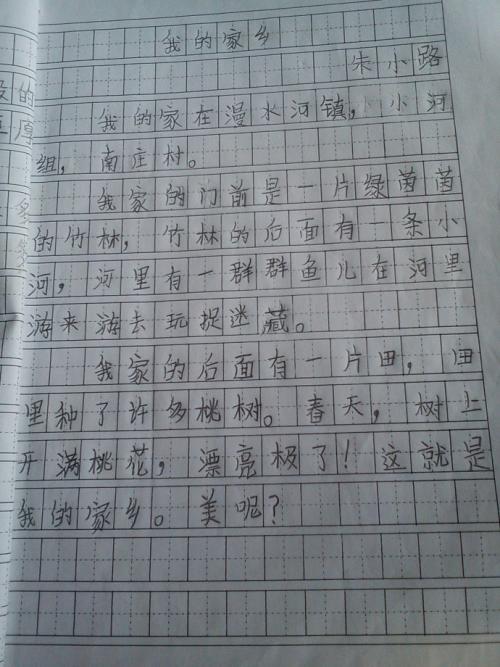 我的家乡
朱小路
我的家在漫水河镇，小河
组，南庄村。
我家的门前是一片绿茵茵
的竹林，竹林的后面有一条小
河，河里有一群群鱼儿在河里
游来游去玩捉迷藏。
我家的后面有一片田，田
里种了许多桃树。春天，树上
开满桃花，漂亮极了！这就是
我的家乡。美呢？